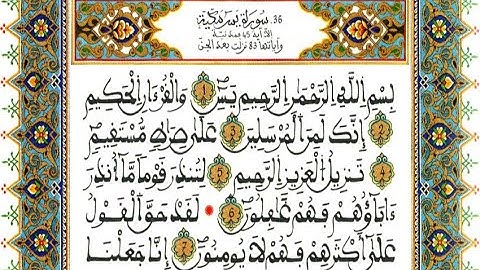 36. سورة يس مكية
الا آية 45 فمدنية
وآياتها 83 نزلت بعد الجن
بِسْمِ اللَّهِ الرَّحْمَٰنِ الرَّحِيمِ يَسِٓ 1 وَالْقُرْءَانِ الْحَكِيمِ
2 إِنَّكَ لَمِنَ الْمُرْسَلِينَ 3 عَلَىٰ صِرَٰطٍ مُّسْتَقِيمٍ
4 تَنزِيلُ الْعَزِيزِ الرَّحِيمِ 5 لِتُنذِرَ قَوْمًا مَّا أُنذِرَ
ءَابَآؤُهُمْ فَهُمْ غَٰفِلُونَ 6 لَقَدْ حَقَّ الْقَوْلُ
عَلَىٰٓ أَكْثَرِهِمْ فَهُمْ لَا يُومِنُونَ 7 إِنَّا جَعَلْنَا